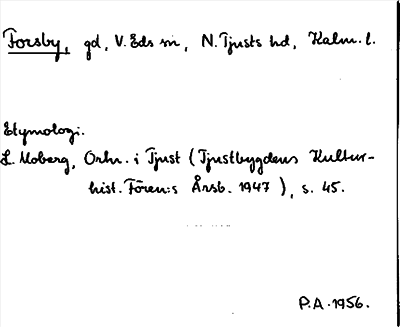 Forsby, gd, V. Eds sn, N. Tjusts hd, Kalm. l.
Etymologi.
L. Moberg, Ortn. i Tjust (Tjustbygdens Kultur-
hist. Fören:s Årsb. 1947), s. 45.
P.A. 1956.